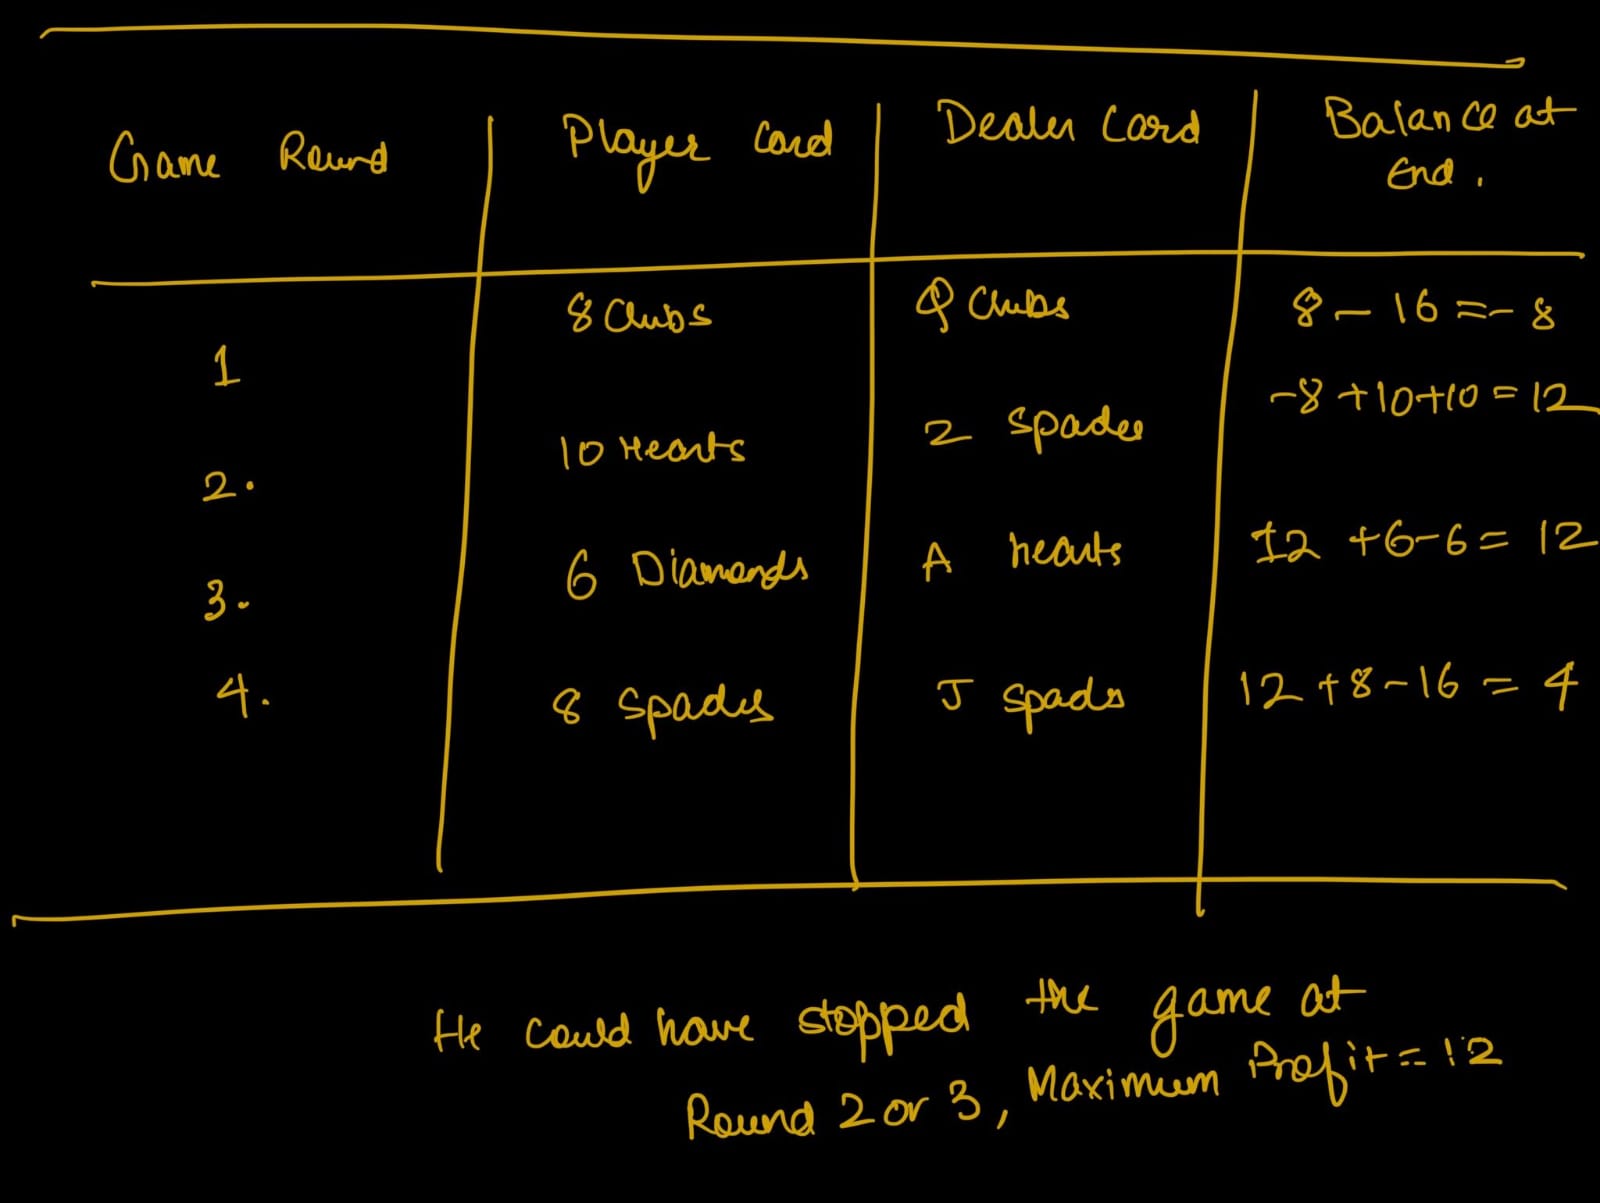 Game Round Player Card Dealer Card Balance at End.
1 8 Clubs Q Clubs 8 - 16 = - 8
2. 10 Hearts 2 Spades -8 + 10 + 10 = 12
3. 6 Diamonds A hearts 12 + 6 - 6 = 12
4. 8 Spades J Spads 12 + 8 - 16 = 4
He could have stopped the game at
Round 2 or 3, Maximum Profit = 12